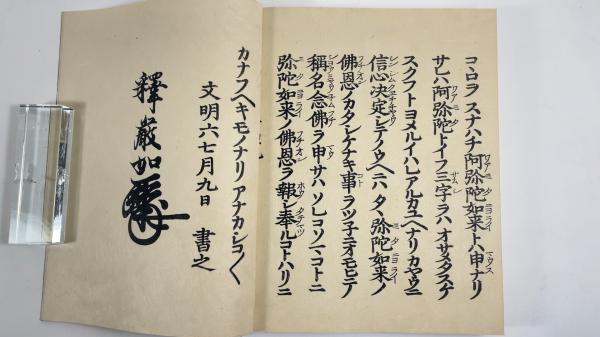 コヽロヲ スナハチ 阿弥陀如来トハ申ナリ
サレハ阿弥陀トイフ三字ヲハ オサメタスケ
スクフトヨメルイハレアルカユヘナリカヤウニ
信心決定シテノウヘニハ タヽ弥陀如来ノ
佛恩ノカタシケナキ事ヲツ子ニオモヒテ
稱名念佛ヲ申サハ ソレコソマコトニ
弥陀如来ノ佛恩ヲ報シ奉ルコトハリニ
カナフヘキモノナリ アナカシコ〳〵
文明六七月九日 書之
釋嚴如